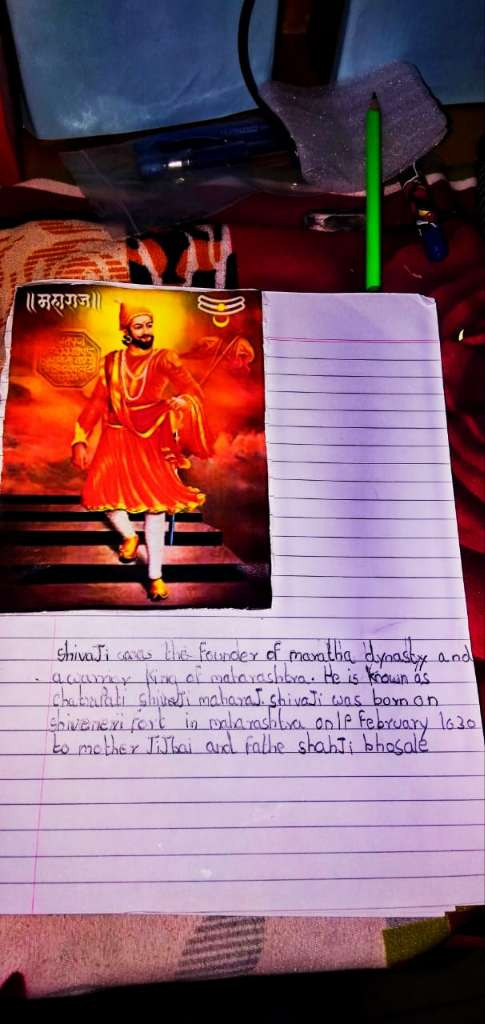 ॥महाराज॥
shivaji was the founder of maratha dynasty and
a warrior king of maharashtra. He is known as
chatrapati shivaji maharaj. shivaji was born on
shiveneri fort in maharashtra on 19 february 1630
to mother JiJbai and fathe shahJi bhosale